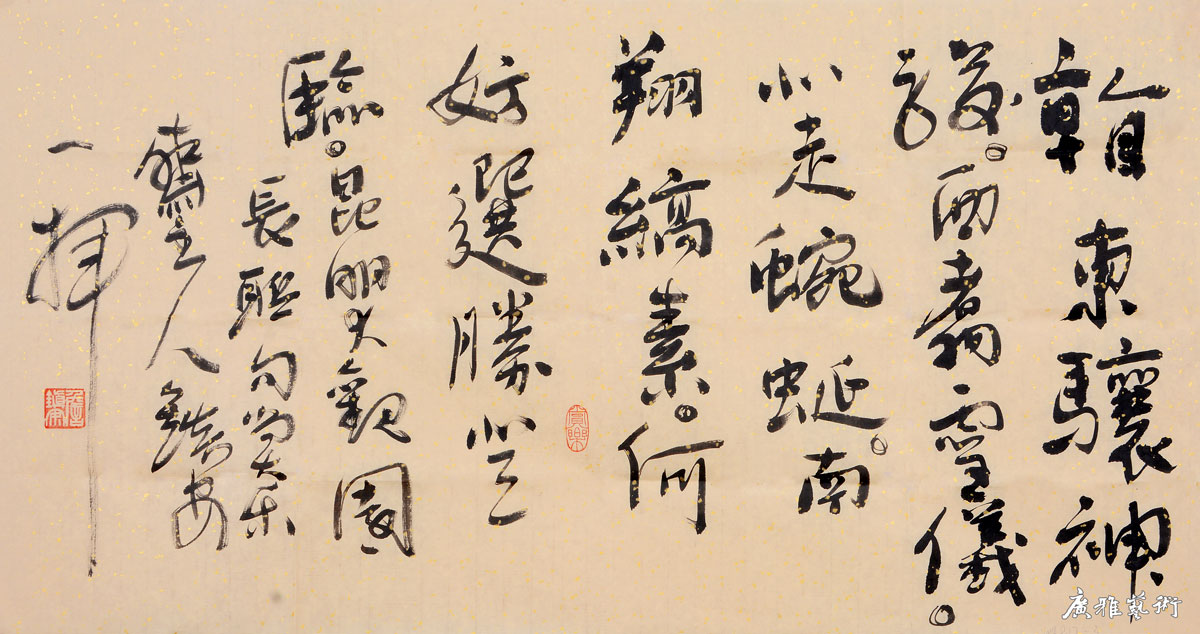 䀍東驤神
駿。西翥靈儀。
北走蜿蜒。南
翔縞素。何
妨選勝登
臨。昆明大觀園
長聯句賞樂
齋主人
一揮
賞樂
廣雅藝術